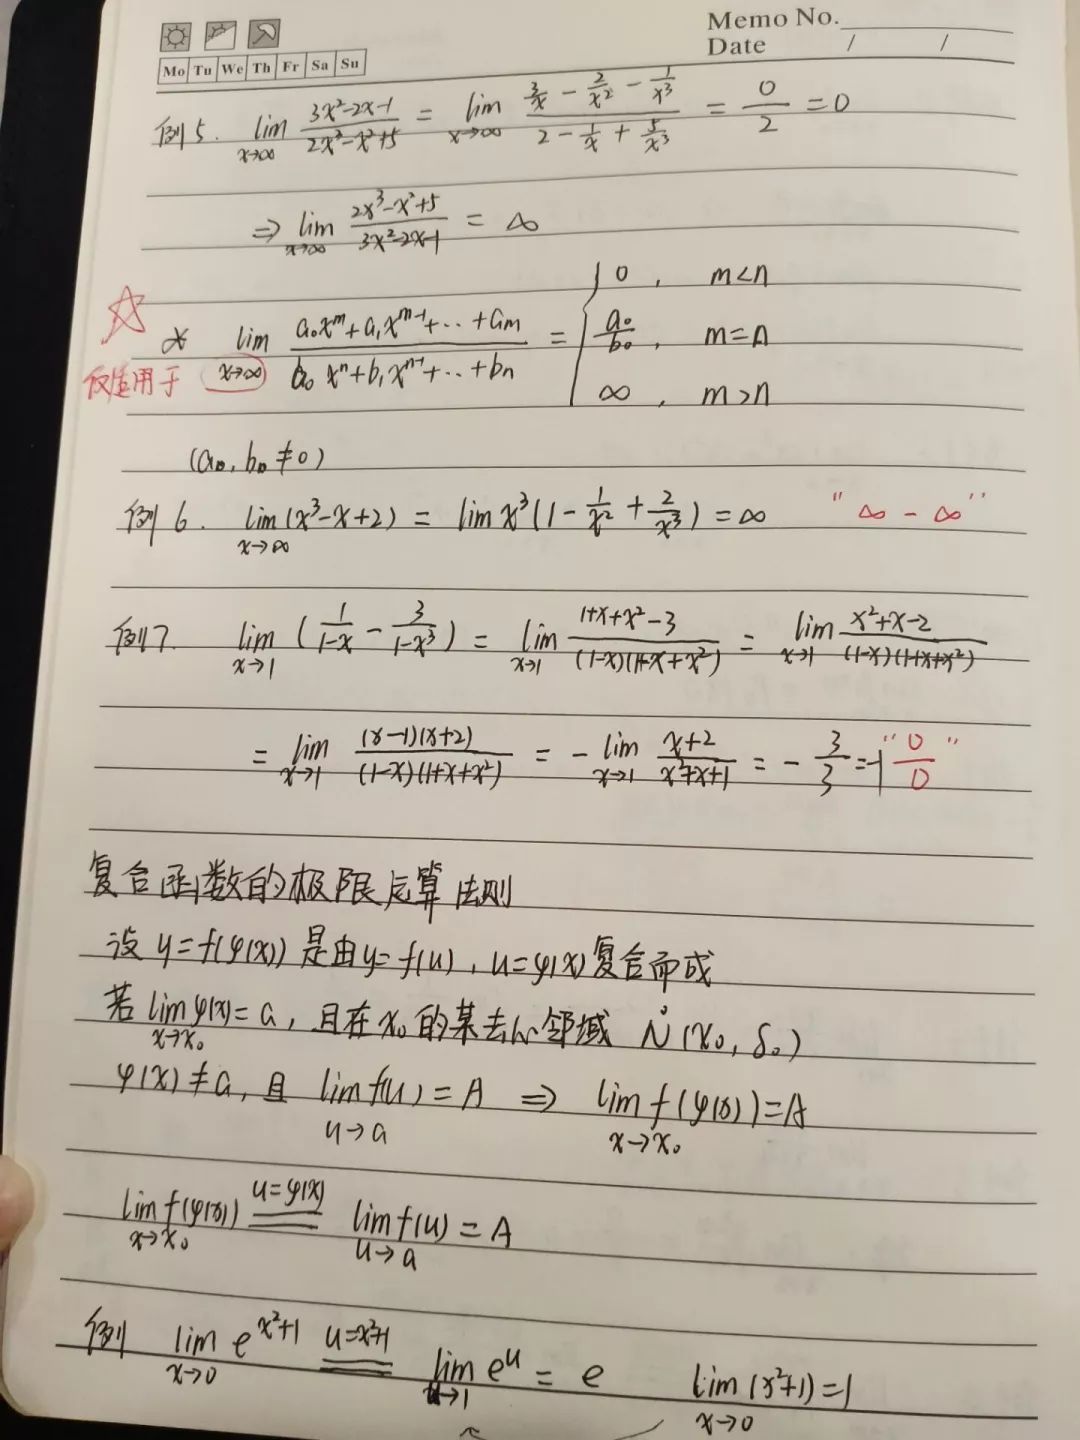 Memo No.
Date / /
Mo Tu We Th Fr Sa Su
例5. lim_{x→∞} (3x²-2x-1)/(2x³-x²+5) = lim_{x→∞} (3/x - 2/x² - 1/x³)/(2 - 1/x + 5/x³) = 0/2 = 0
⇒ lim_{x→∞} (2x³-x²+5)/(3x²-2x-1) = ∞
☆ * lim_{x→∞} (a₀x^m+a₁x^{m-1}+‥+a_m)/(b₀x^n+b₁x^{n-1}+‥+b_n) = { 0, m<n
a₀/b₀, m=n
∞, m>n
仅适用于
(a₀, b₀ ≠0)
例6. lim_{x→∞} (x³-x+2) = lim x³(1 - 1/x² + 2/x³) = ∞ "∞-∞"
例7. lim_{x→1} (1/(1-x) - 3/(1-x³)) = lim_{x→1} (1+x+x²-3)/((1-x)(1+x+x²)) = lim_{x→1} (x²+x-2)/((1-x)(1+x+x²))
= lim_{x→1} ((x-1)(x+2))/((1-x)(1+x+x²)) = -lim_{x→1} (x+2)/(x²+x+1) = -3/3 = -1 "0/0"
复合函数的极限运算法则
设 y=f(φ(x)) 是由y=f(u), u=φ(x)复合而成
若 lim_{x→x₀} φ(x)=a, 且在x₀的某去心邻域 N̊(x₀, δ₀)
φ(x)≠a, 且 lim_{u→a} f(u)=A ⇒ lim_{x→x₀} f(φ(x))=A
lim_{x→x₀} f(φ(x)) =(u=φ(x))= lim_{u→a} f(u)=A
例 lim_{x→0} e^{x²+1} =(u=x²+1)= lim_{u→1} e^u = e lim_{x→0} (x²+1)=1